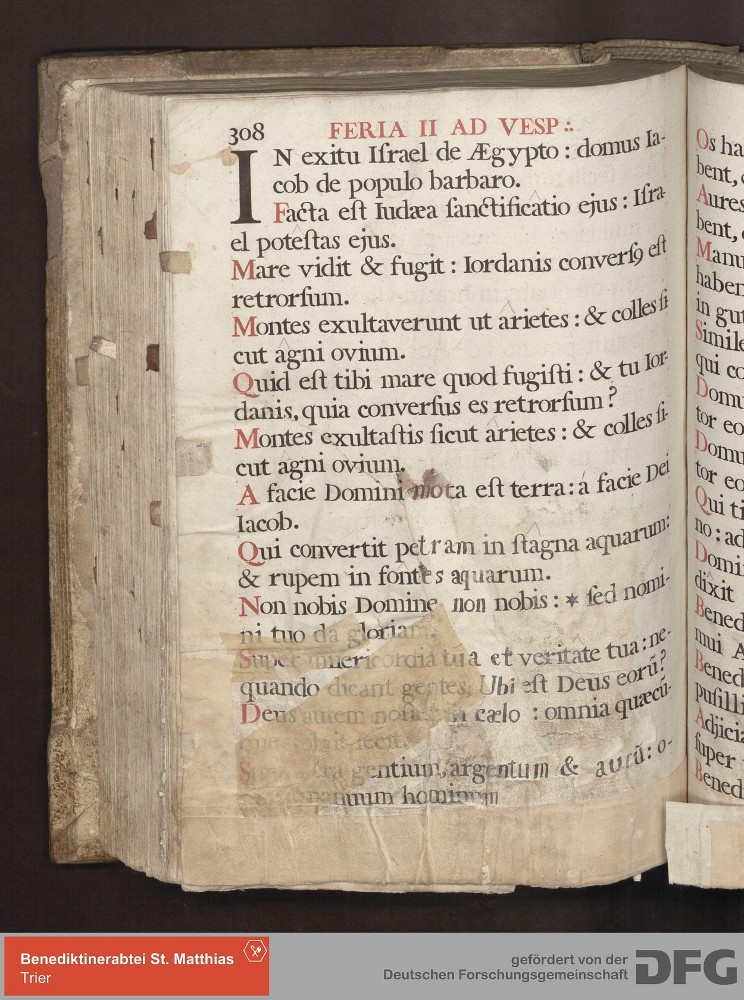 308 FERIA II AD VESP :.
IN exitu Iſrael de Ægypto : domus Ia-
cob de populo barbaro.
Facta eſt Iudæa ſanctificatio ejus : Iſra-
el poteſtas ejus.
Mare vidit & fugit : Iordanis converſꝰ eſt
retrorſum.
Montes exultaverunt ut arietes : & colles ſi
cut agni ovium.
Quid eſt tibi mare quod fugiſti : & tu Ior-
danis, quia converſus es retrorſum ?
Montes exultaſtis ſicut arietes : & colles ſi-
cut agni ovium.
A facie Domini mota eſt terra : á facie Dei
Iacob.
Qui convertit petram in ſtagna aquarum :
& rupem in fontes aquarum.
Non nobis Domine non nobis : * ſed nomi-
ni tuo da gloriam.
Super miſericordia tua et veritate tua : ne-
quando dicant gentes, Ubi eſt Deus eorũ ?
Deus autem noſter in cælo : omnia quæcũ-
gentium, argentum & aurũ : o-
manuum hominum
Os ha
bent,
Aures
bent,
Manu
haben
in gut
Simile
qui co
Domu
tor eo
Domu
tor eo
Qui ti
no : ad
Domi
dixit
Bened
mui A
Bened
puſilli
Adjicia
ſuper
Bened
Benediktinerabtei St. Matthias
Trier
gefördert von der
Deutschen Forschungsgemeinschaft
DFG